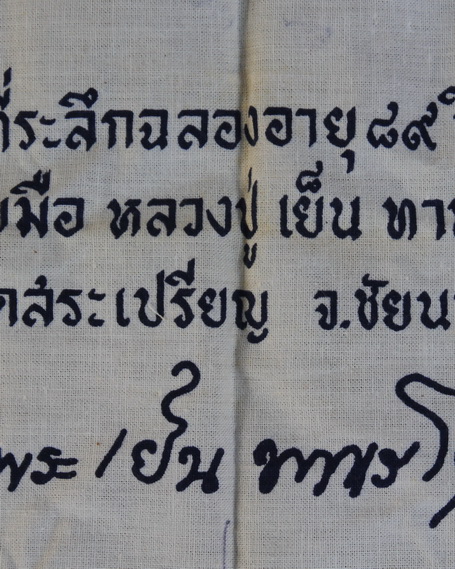 ที่ระลึกฉลองอายุ ๘๙
มือ หลวงปู่ เย็น ทาน
สระเปรียญ จ.ชัยน
พระ เย็น